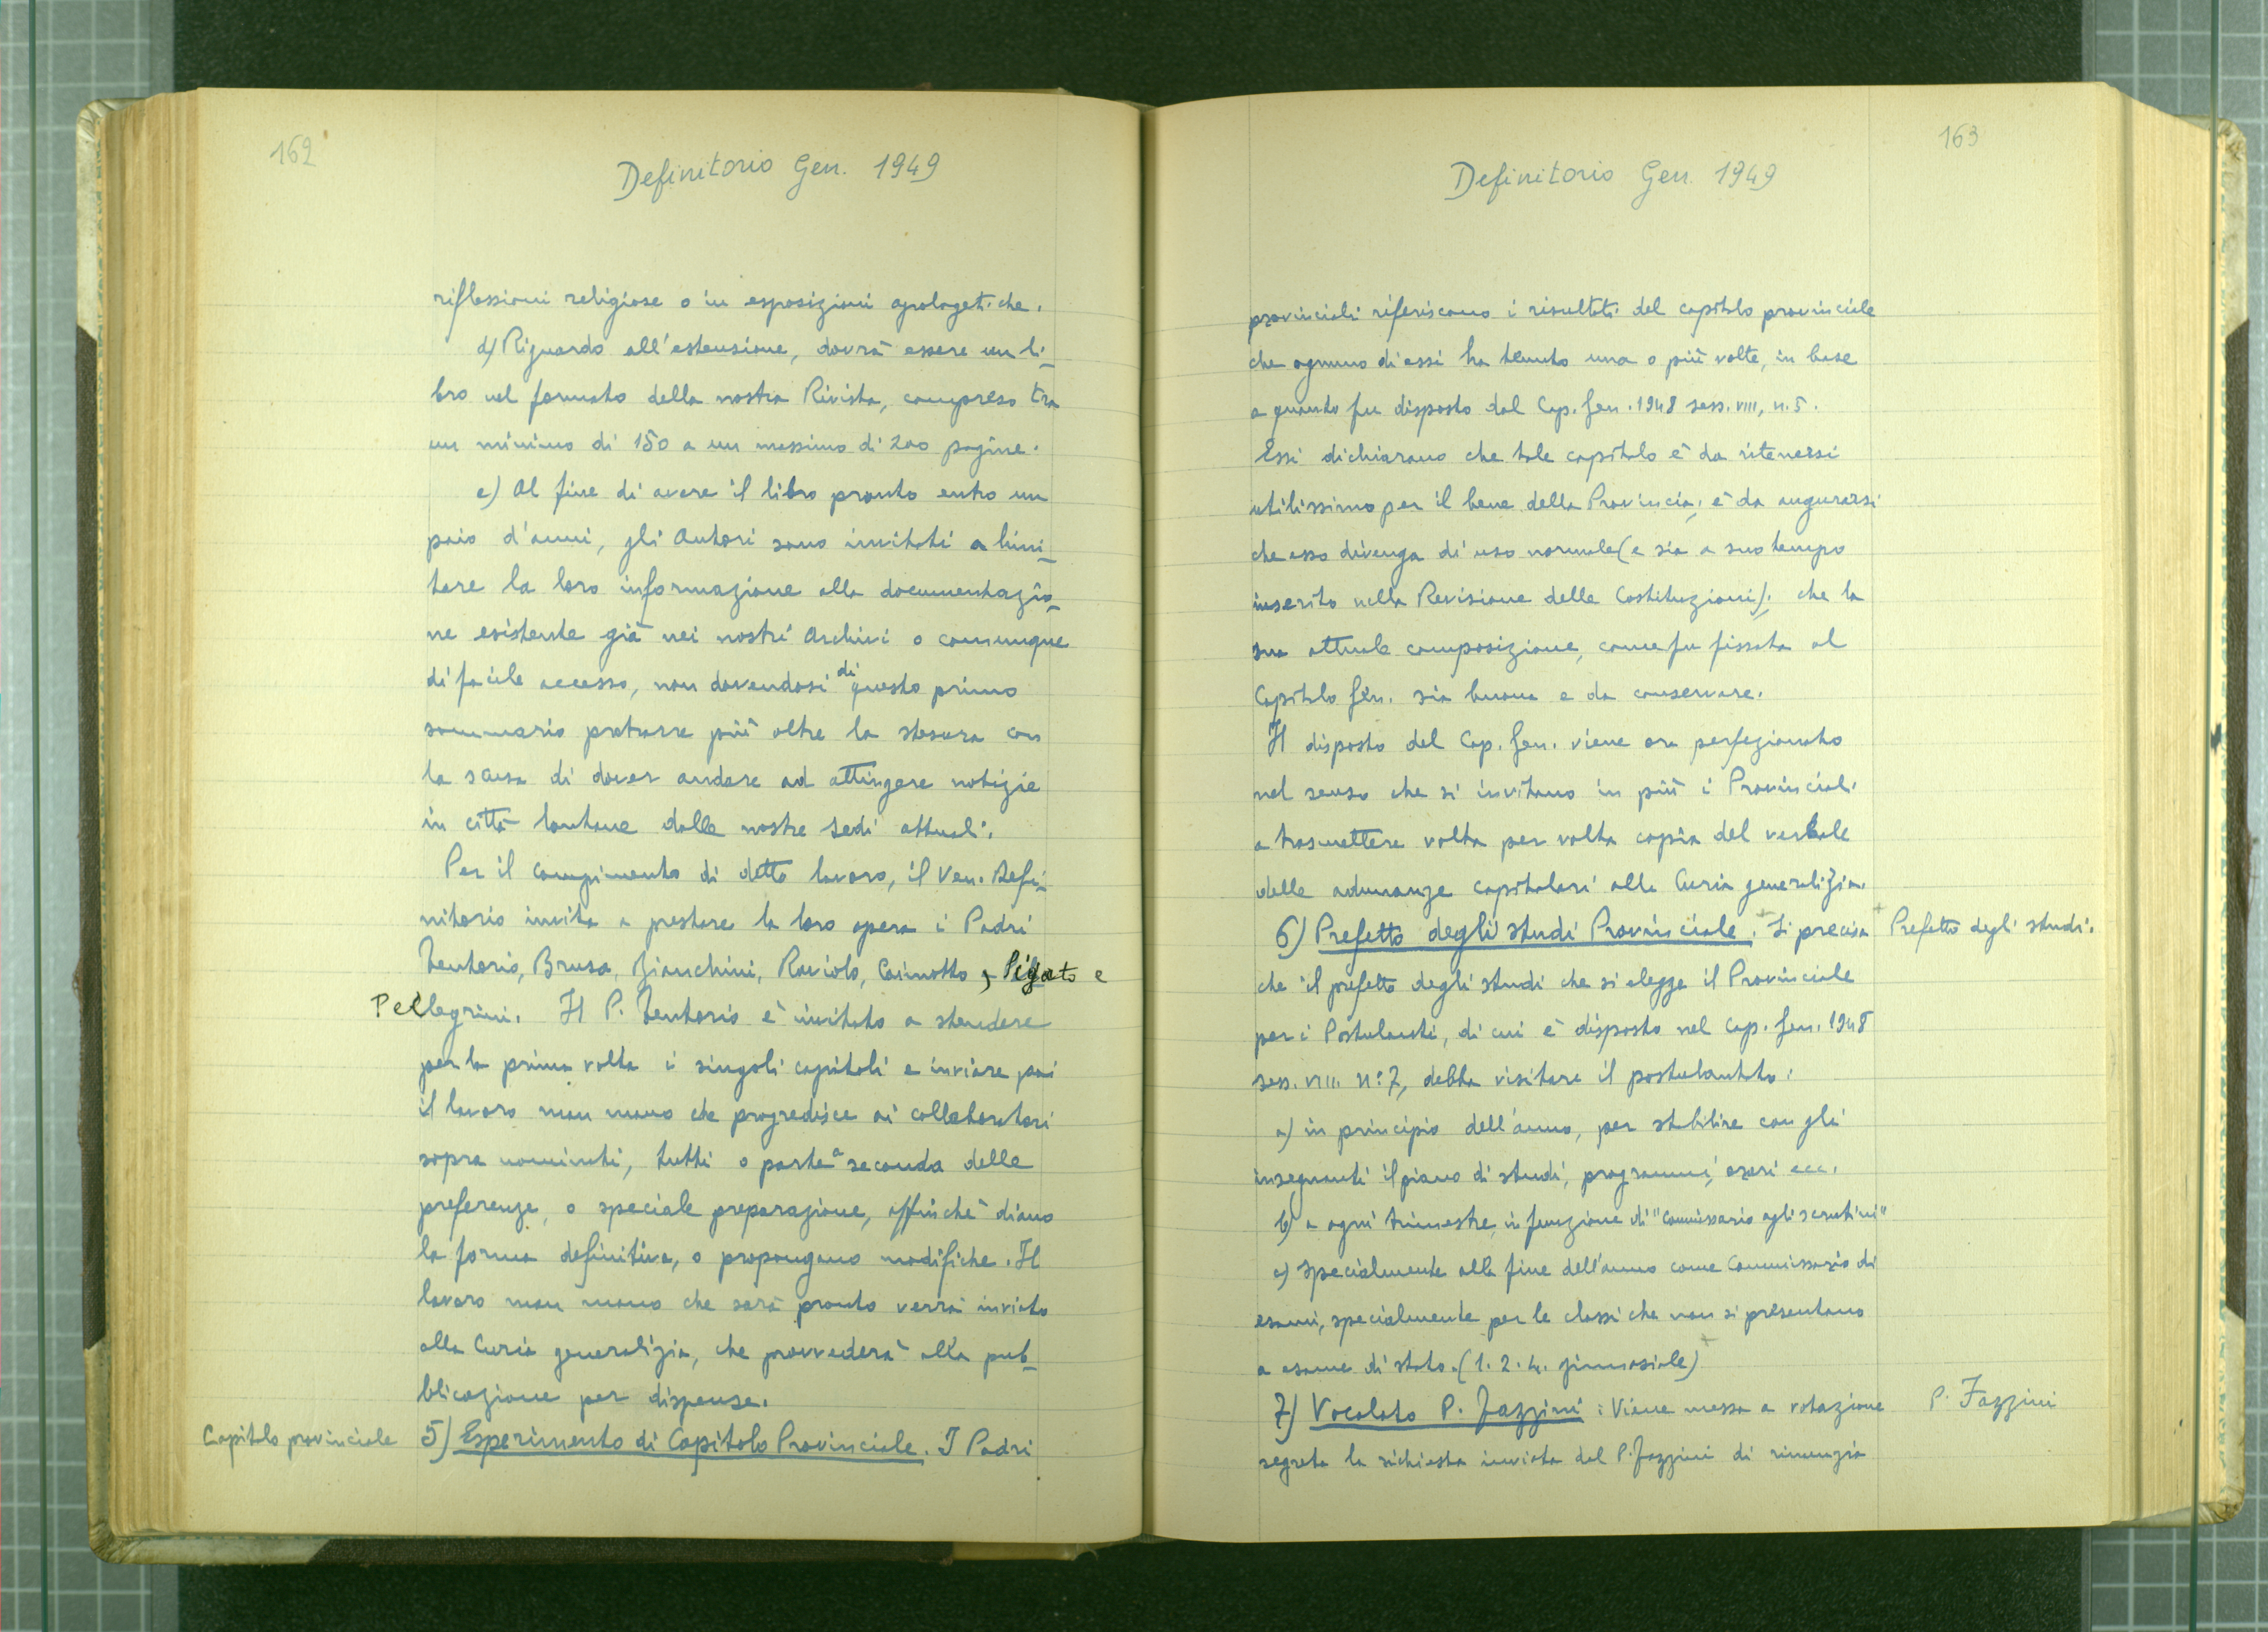 162
Definitorio Gen. 1949
riflessioni religiose o in esposizioni apologetiche.
d) Riguardo all'estensione, dovrà essere un li-
bro nel formato della nostra Rivista, compreso tra
un minimo di 150 a un massimo di 200 pagine.
e) Al fine di avere il libro pronto entro un
paio d'anni, gli Autori sono invitati a limi-
tare la loro informazione alla documentazio-
ne esistente già nei nostri Archivi o comunque
di facile accesso, non dovendosi di questo primo
sommario protrarre più oltre la stesura con
la scusa di dover andare ad attingere notizie
in città lontane dalle nostre sedi attuali.
Per il compimento di detto lavoro, il Ven. Defi-
nitorio invita a prestare la loro opera i Padri
Tentorio, Brusa, Bianchini, Raviolo, Caimotto, Pigato e
Pellegrini. Il P. Tentorio è invitato a stendere
per la prima volta i singoli capitoli e inviare poi
il lavoro man mano che progredisce ai collaboratori
sopra nominati, tutti o parte a seconda delle
preferenze, o speciale preparazione, affinchè diano
la forma definitiva, o propongano modifiche. Il
lavoro man mano che sarà pronto verrà inviato
alla Curia generalizia, che provvederà alla pub-
blicazione per dispense.
Capitolo provinciale
5) Esperimento di Capitolo Provinciale. I Padri
163
Definitorio Gen. 1949
provinciali riferiscono i risultati del capitolo provinciale
che ognuno di essi ha tenuto una o più volte, in base
a quanto fu disposto dal Cap. Gen. 1948 sess. VIII, n. 5.
Essi dichiarano che tale capitolo è da ritenersi
utilissimo per il bene della Provincia; è da augurarsi
che esso divenga di uso normale (e sia a suo tempo
inserito nella Revisione delle Costituzioni); che la
sua attuale composizione, come fu fissata al
Capitolo Gen. sia buona e da conservare.
Il disposto del Cap. Gen. viene ora perfezionato
nel senso che si invitano in più i Provinciali
a trasmettere volta per volta copia del verbale
delle adunanze capitolari alla Curia generalizia.
6) Prefetto degli studi Provinciale. Si precisa
Prefetto degli studi.
che il prefetto degli studi che si elegge il Provinciale
per i Postulanti, di cui è disposto nel Cap. Gen. 1948
sess. VIII. n° 7, debba visitare il postulantato:
a) in principio dell'anno, per stabilire con gli
insegnanti il piano di studi, programmi, orari ecc.
b) a ogni trimestre, in funzione di "Commissario agli scrutini"
c) specialmente alla fine dell'anno come Commissario di
esami, specialmente per le classi che non si presentano
a esame di stato. (1. 2. 4. ginnasiale)
7) Vocalato P. Fazzini: Viene messa a votazione
P. Fazzini
segreta la richiesta inviata dal P. Fazzini di rinunzia